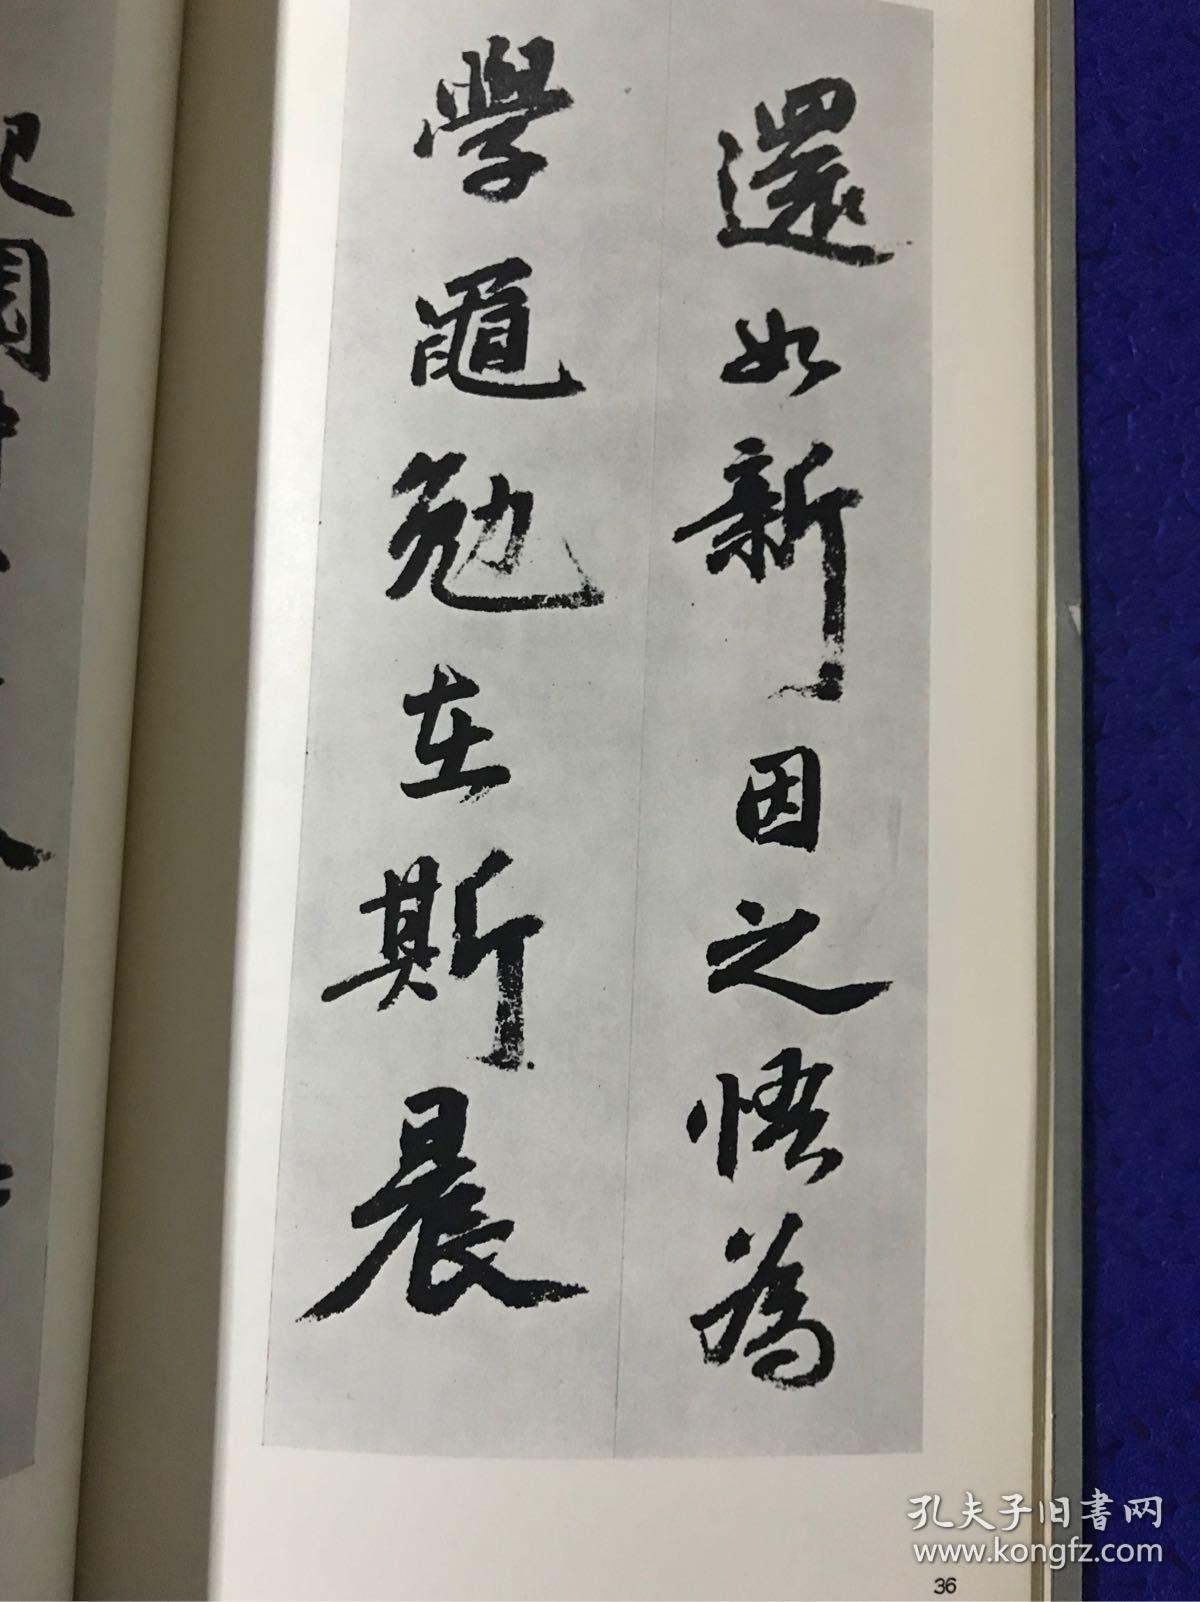 還如新因之悟為
學黽勉在斯晨
36
孔夫子旧书网
www.kongfz.com